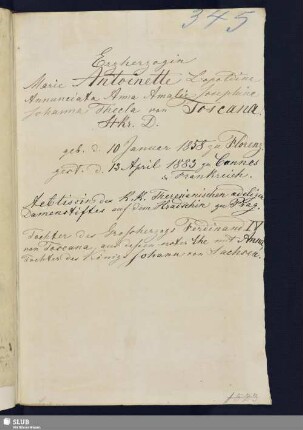 345
Erzherzogin
Marie Antoinette Leopoldine
Annunciata Anna Amalie Josephine
Johanna Thecla von Toscana.
StKr. D.
geb. d. 10 Januar 1858 zu Florenz
gest. d. 13 April 1883 zu Cannes
Frankreich.
Aebtissin des K. K. Theresianischen adeligen
Damenstiftes auf dem Hradschin zu Prag.
Tochter des Grossherzogs Ferdinand IV
von Toscana, aus dessen erster Ehe mit Anna
Tochter des Königs Johann von Sachsen.
SLUB
Wir führen Wissen.